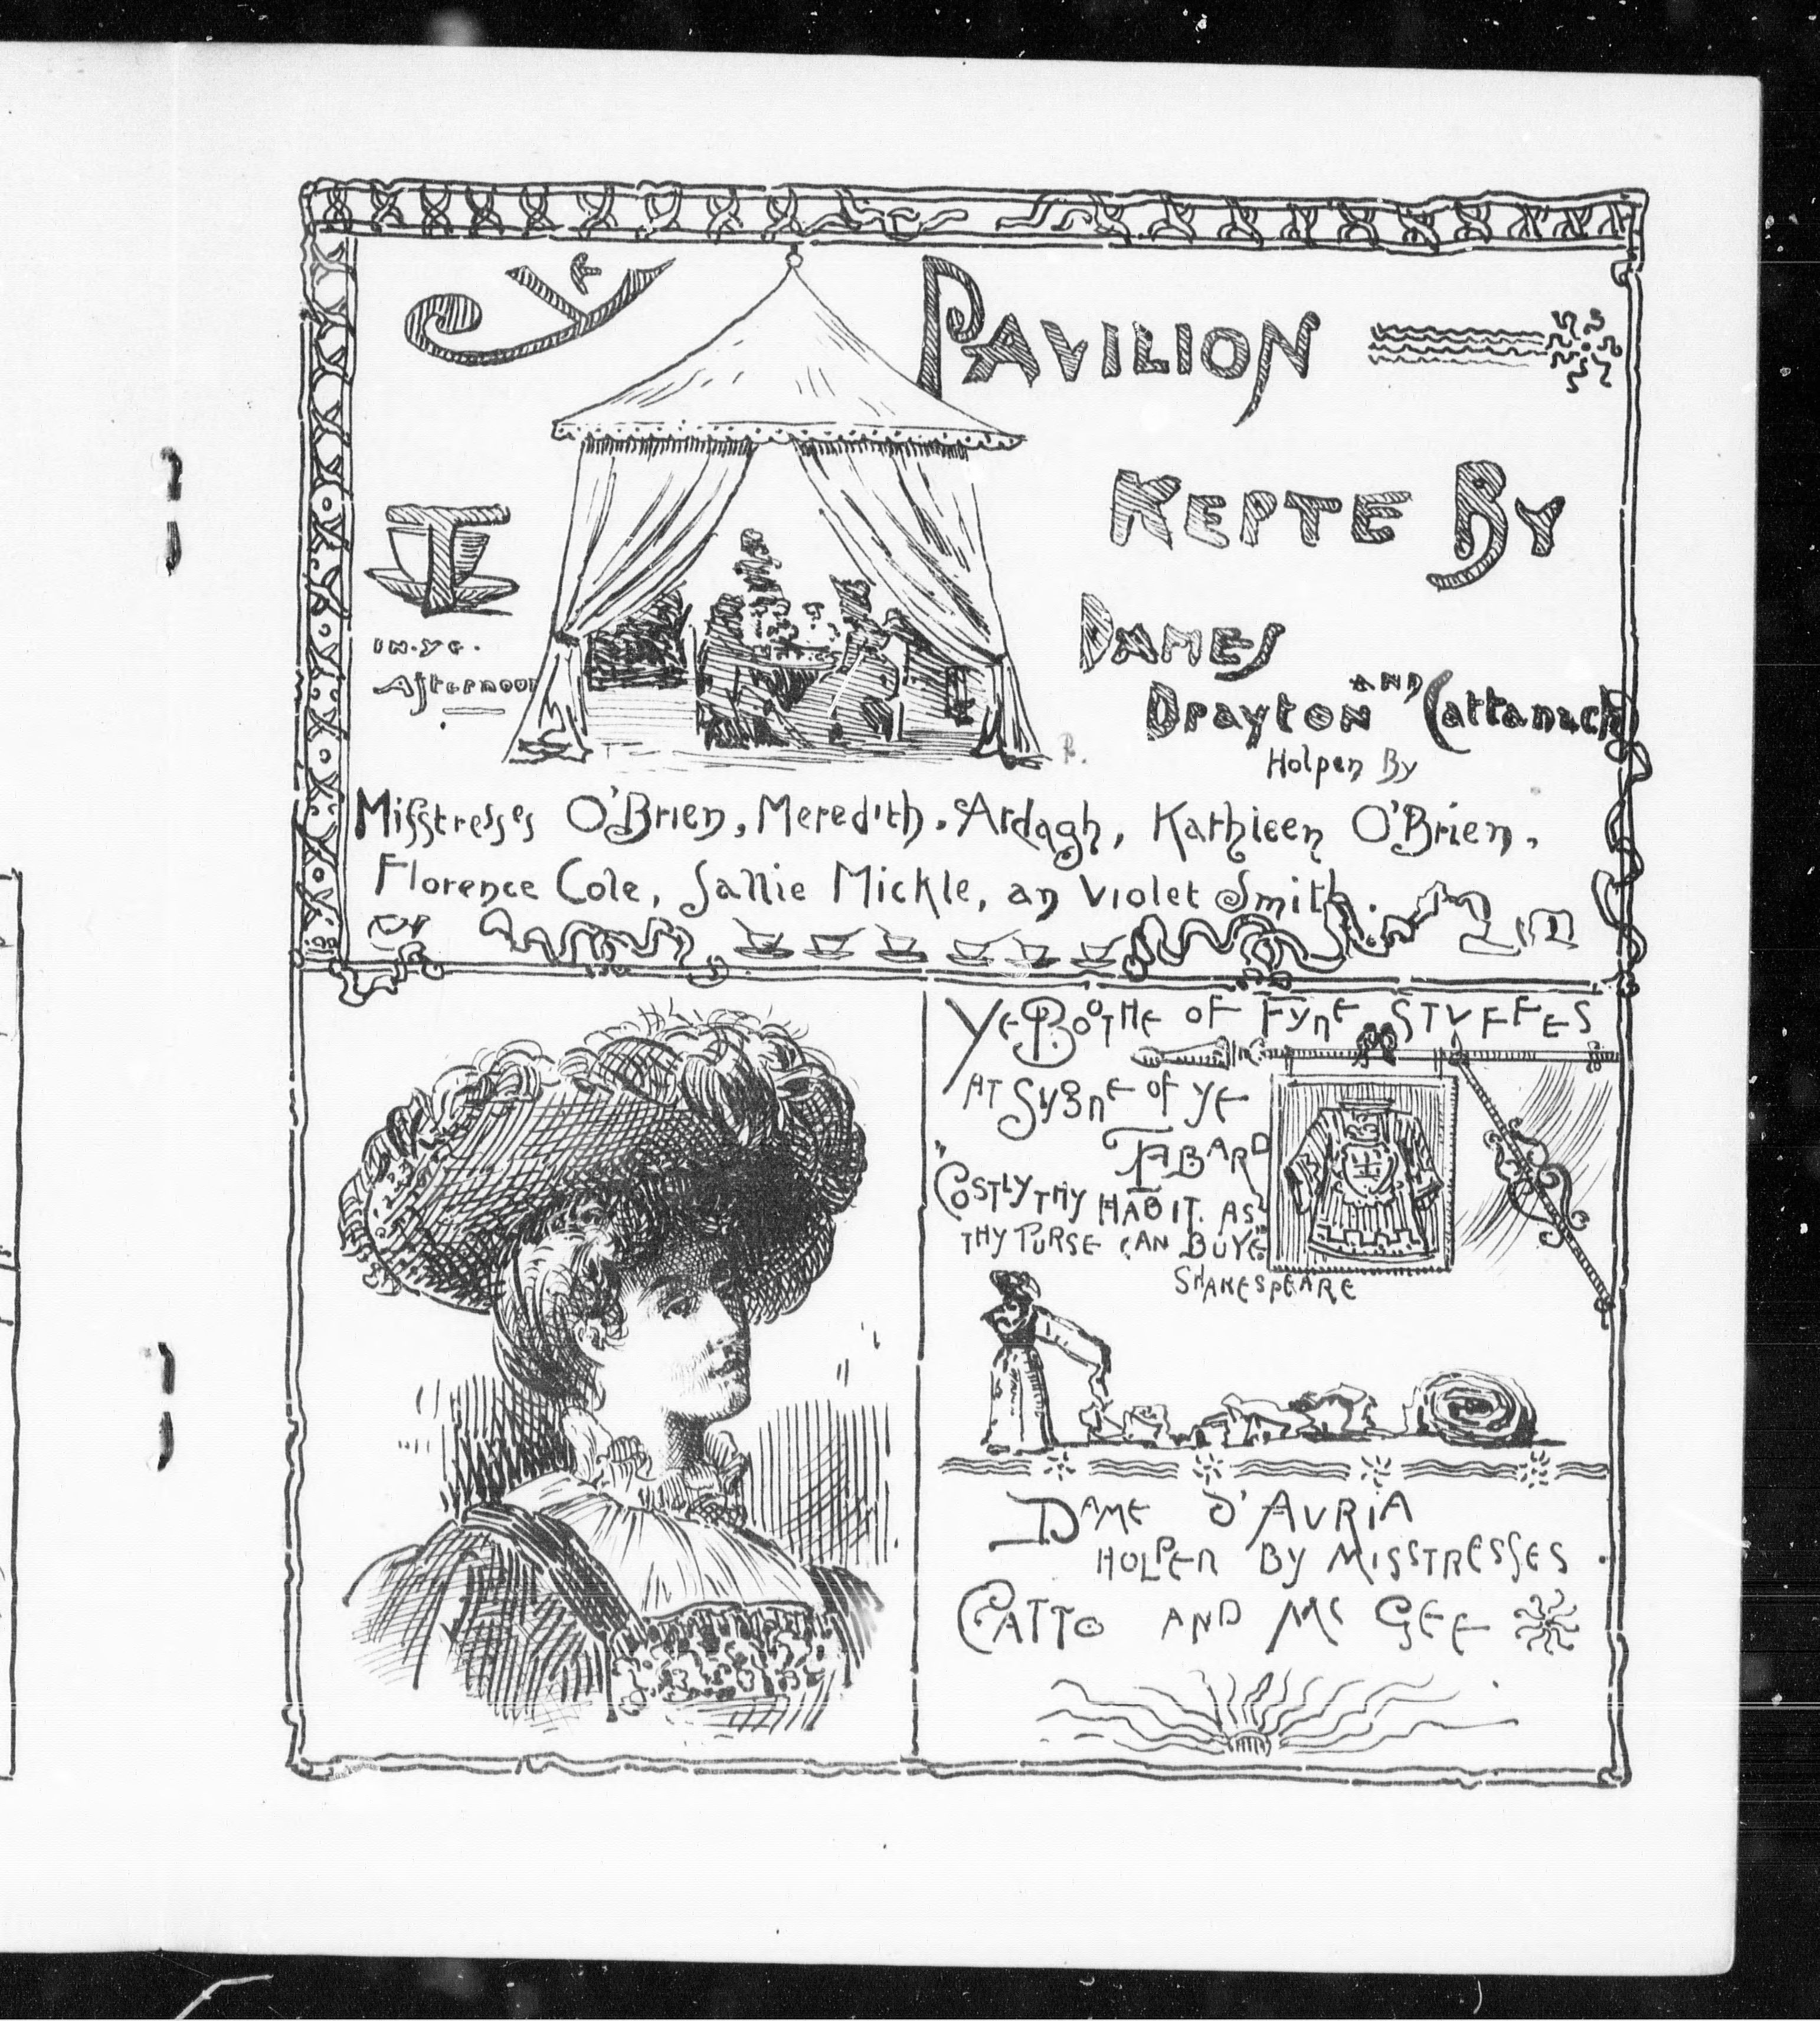 Ye PAVILION
KEPTE BY
T
IN·YE·
Afternoon
DAMES
Drayton AND Cattanach
Holpen By
Misstresses O'Brien, Meredith, Ardagh, Kathleen O'Brien,
Florence Cole, Sallie Mickle, an Violet Smith.
YE BOOTHE OF FYNE STVFFES
AT SYGNE OF YE
TABARD
"COSTLY THY HABIT. AS
THY PURSE CAN BUYE"
SHAKESPEARE
DAME D'AVRIA
HOLPEN BY MISSTRESSES
CATTO AND Mc GEE